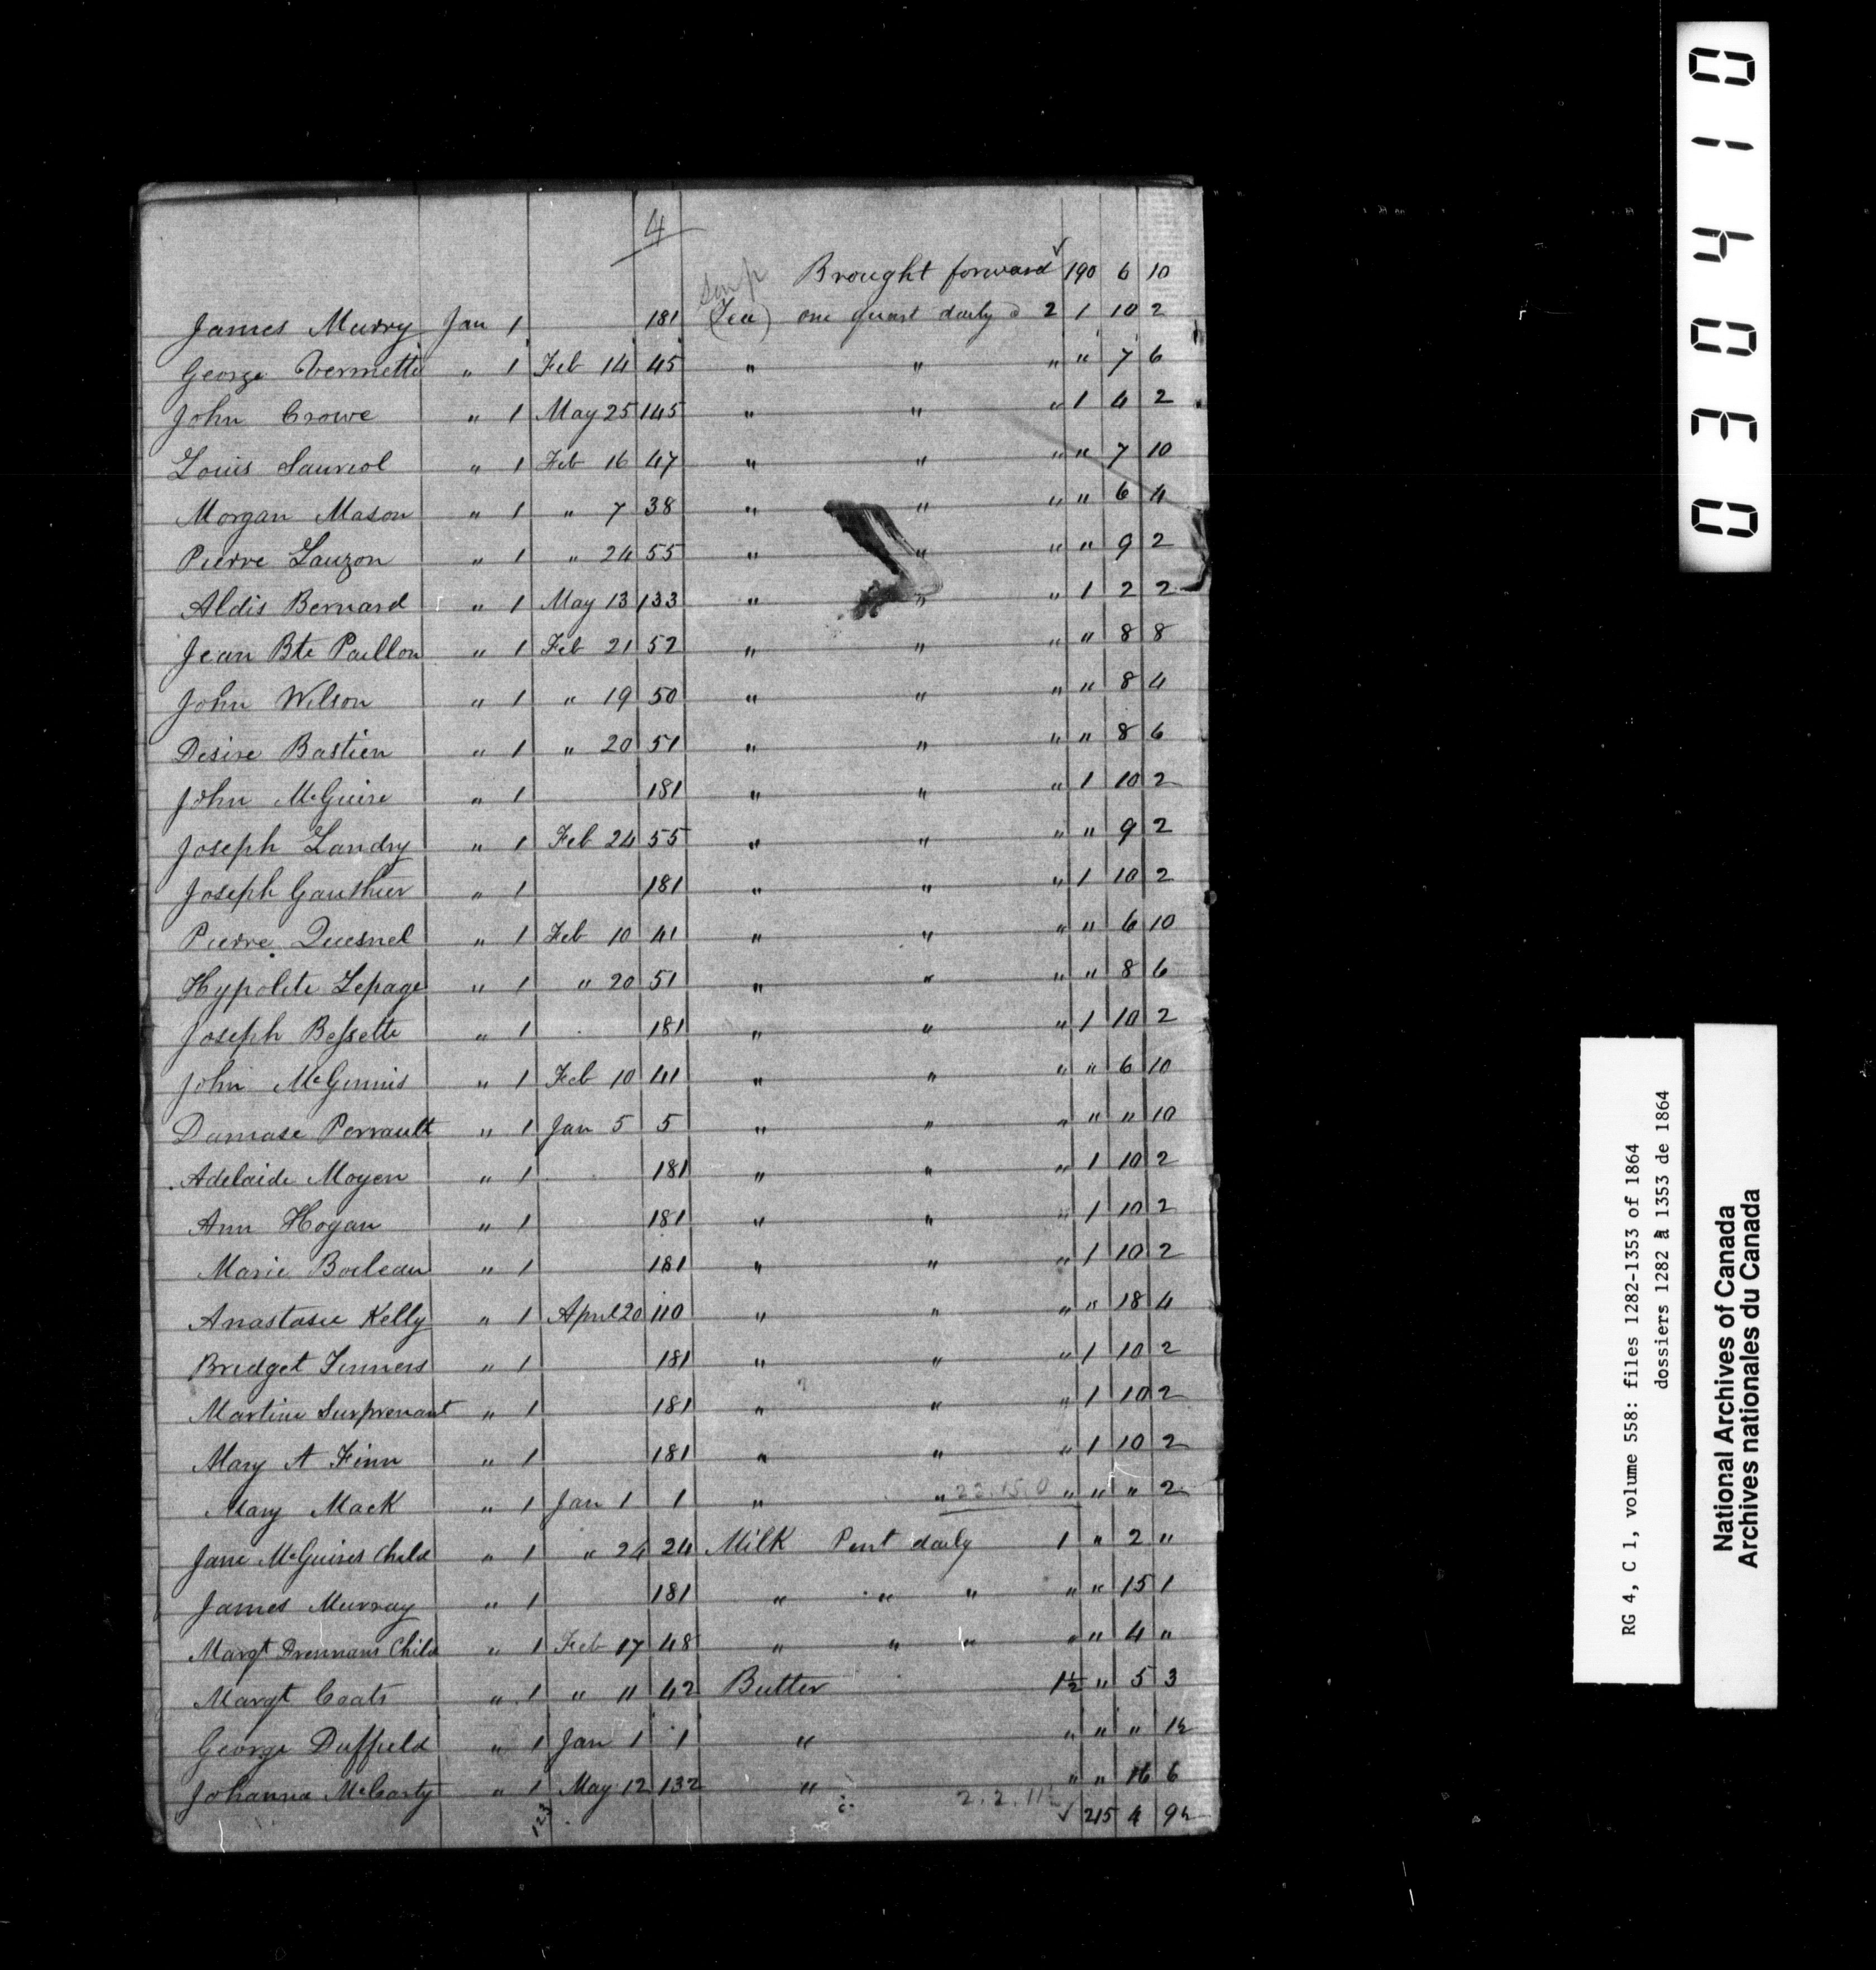 4
Brought forward ✓ 190 6 10
James Murry Jan 1 181 (Tea) one quart daily @ 2 1 10 2
George Vermette " 1 Feb 14 45 " " " " 7 6
John Crowe " 1 May 25 145 " " " 1 4 2
Louis Sauriol " 1 Feb 16 47 " " " " 7 10
Morgan Mason " 1 " 7 38 " " " " 6 4
Pierre Lauzon " 1 " 24 55 " " " " 9 2
Aldis Bernard " 1 May 13 133 " " " 1 2 2
Jean Bte Paillon " 1 Feb 21 52 " " " " 8 8
John Wilson " 1 " 19 50 " " " " 8 4
Desire Bastien " 1 " 20 51 " " " " 8 6
John McGuire " 1 181 " " " 1 10 2
Joseph Landry " 1 Feb 24 55 " " " " 9 2
Joseph Gauthier " 1 181 " " " 1 10 2
Pierre Quesnel " 1 Feb 10 41 " " " " 6 10
Hypolite Lepage " 1 " 20 51 " " " " 8 6
Joseph Bessette " 1 181 " " " 1 10 2
John McGinnis " 1 Feb 10 41 " " " " 6 10
Damase Perrault " 1 Jan 5 5 " " " " " 10
Adelaide Moyen " 1 181 " " " 1 10 2
Ann Hogan " 1 181 " " " 1 10 2
Marie Boileau " 1 181 " " " 1 10 2
Anastasie Kelly " 1 April 20 110 " " " " 18 4
Bridget Finners " 1 181 " " " 1 10 2
Martine Surprenant " 1 181 " " " 1 10 2
Mary A Finn " 1 181 " " " 1 10 2
Mary Mack " 1 Jan 1 1 " " 22.15.0 " " " 2
Jane McGuires Child " 1 " 24 24 Milk Pint daily 1 " 2 "
James Murray " 1 181 " " " " " 15 1
Margt Drennans Child " 1 Feb 17 48 " " " " " 4 "
Margt Coats " 1 " 11 42 Butter 1½ " 5 3
George Duffield " 1 Jan 1 1 " " " " 1½
Johanna McCarty " 1 May 12 132 " " " 16 6
123 2.2.11½ ✓ 215 4 9½
03041 0
RG 4, C 1, volume 558: files 1282-1353 of 1864
dossiers 1282 à 1353 de 1864
National Archives of Canada
Archives nationales du Canada